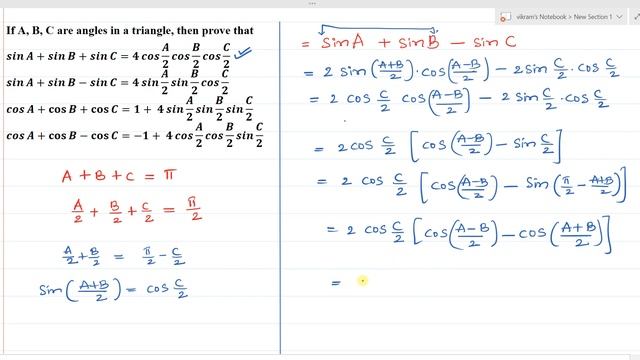 vikram's Notebook > New Section 1
If A, B, C are angles in a triangle, then prove that
sin A + sin B + sin C = 4 cos A/2 cos B/2 cos C/2
sin A + sin B − sin C = 4 sin A/2 sin B/2 cos C/2
cos A + cos B + cos C = 1 + 4 sin A/2 sin B/2 sin C/2
cos A + cos B − cos C = −1 + 4 cos A/2 cos B/2 sin C/2
A + B + C = π
A/2 + B/2 + C/2 = π/2
A/2 + B/2 = π/2 − C/2
Sin((A+B)/2) = cos C/2
= sin A + sin B − sin C
= 2 sin((A+B)/2) · cos((A−B)/2) − 2 sin C/2 · cos C/2
= 2 cos C/2 cos((A−B)/2) − 2 sin C/2 · cos C/2
= 2 cos C/2 [cos((A−B)/2) − sin C/2]
= 2 cos C/2 [cos((A−B)/2) − sin(π/2 − (A+B)/2)]
= 2 cos C/2 [cos((A−B)/2) − cos((A+B)/2)]
=